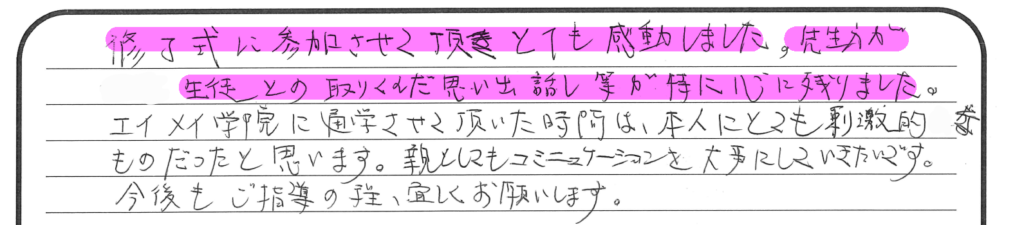 修了式に参加させて頂きとても感動しました。先生方が
生徒との取りくんだ思い出話し等が特に心に残りました。
エイメイ学院に通学させて頂いた時間は、本人にとても刺激的な
ものだったと思います。親としてもコミニュケーションを大事にしていきたいです。
今後もご指導の程、宜しくお願いします。